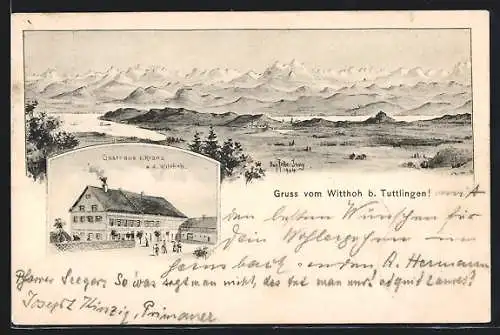 Gasthaus z. Kranz
a. d. Witthoh.
Gruss vom Witthoh b. Tuttlingen! mit
den besten Wünschen für
Dein Wohlergehen
senden A. Hermann
Pfarrer Seeger. So was sagt man nicht, das tut man und
Joseph Hinzig, Primaner